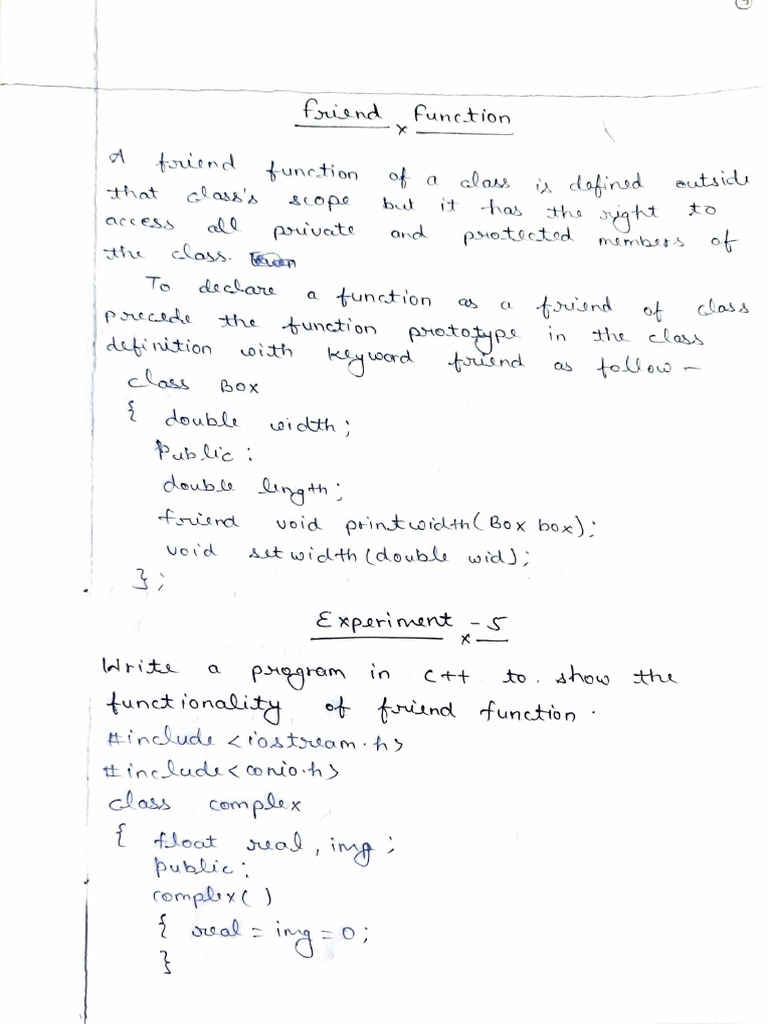 Friend Function
A friend function of a class is defined outside
that class's scope but it has the right to
access all private and protected members of
the class.
To declare a function as a friend of class
precede the function prototype in the class
definition with keyword friend as follow -
class Box
{ double width;
Public:
double length;
friend void printwidth(Box box);
void setwidth(double wid);
};
Experiment - 5
Write a program in C++ to show the
functionality of friend function.
#include <iostream.h>
#include<conio.h>
class complex
{ float real, img;
public:
complex()
{ real = img = 0;
}